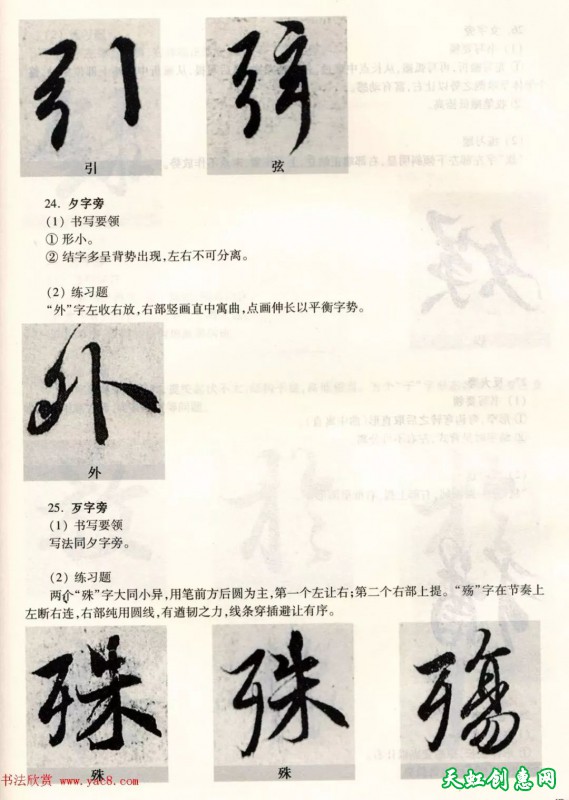 引 弦
引 弦
24. 夕字旁
(1) 书写要领
① 形小。
② 结字多呈背势出现,左右不可分离。
(2) 练习题
“外”字左收右放,右部竖画直中寓曲,点画伸长以平衡字势。
外
外
25. 歹字旁
(1) 书写要领
写法同夕字旁。
(2) 练习题
两个“殊”字大同小异,用笔前方后圆为主,第一个左让右;第二个右部上提。“殇”字在节奏上
左断右连,右部纯用圆线,有遒韧之力,线条穿插避让有序。
殊 殊 殇
殊 殊
书法欣赏 www.yac8.com
天虹创惠网